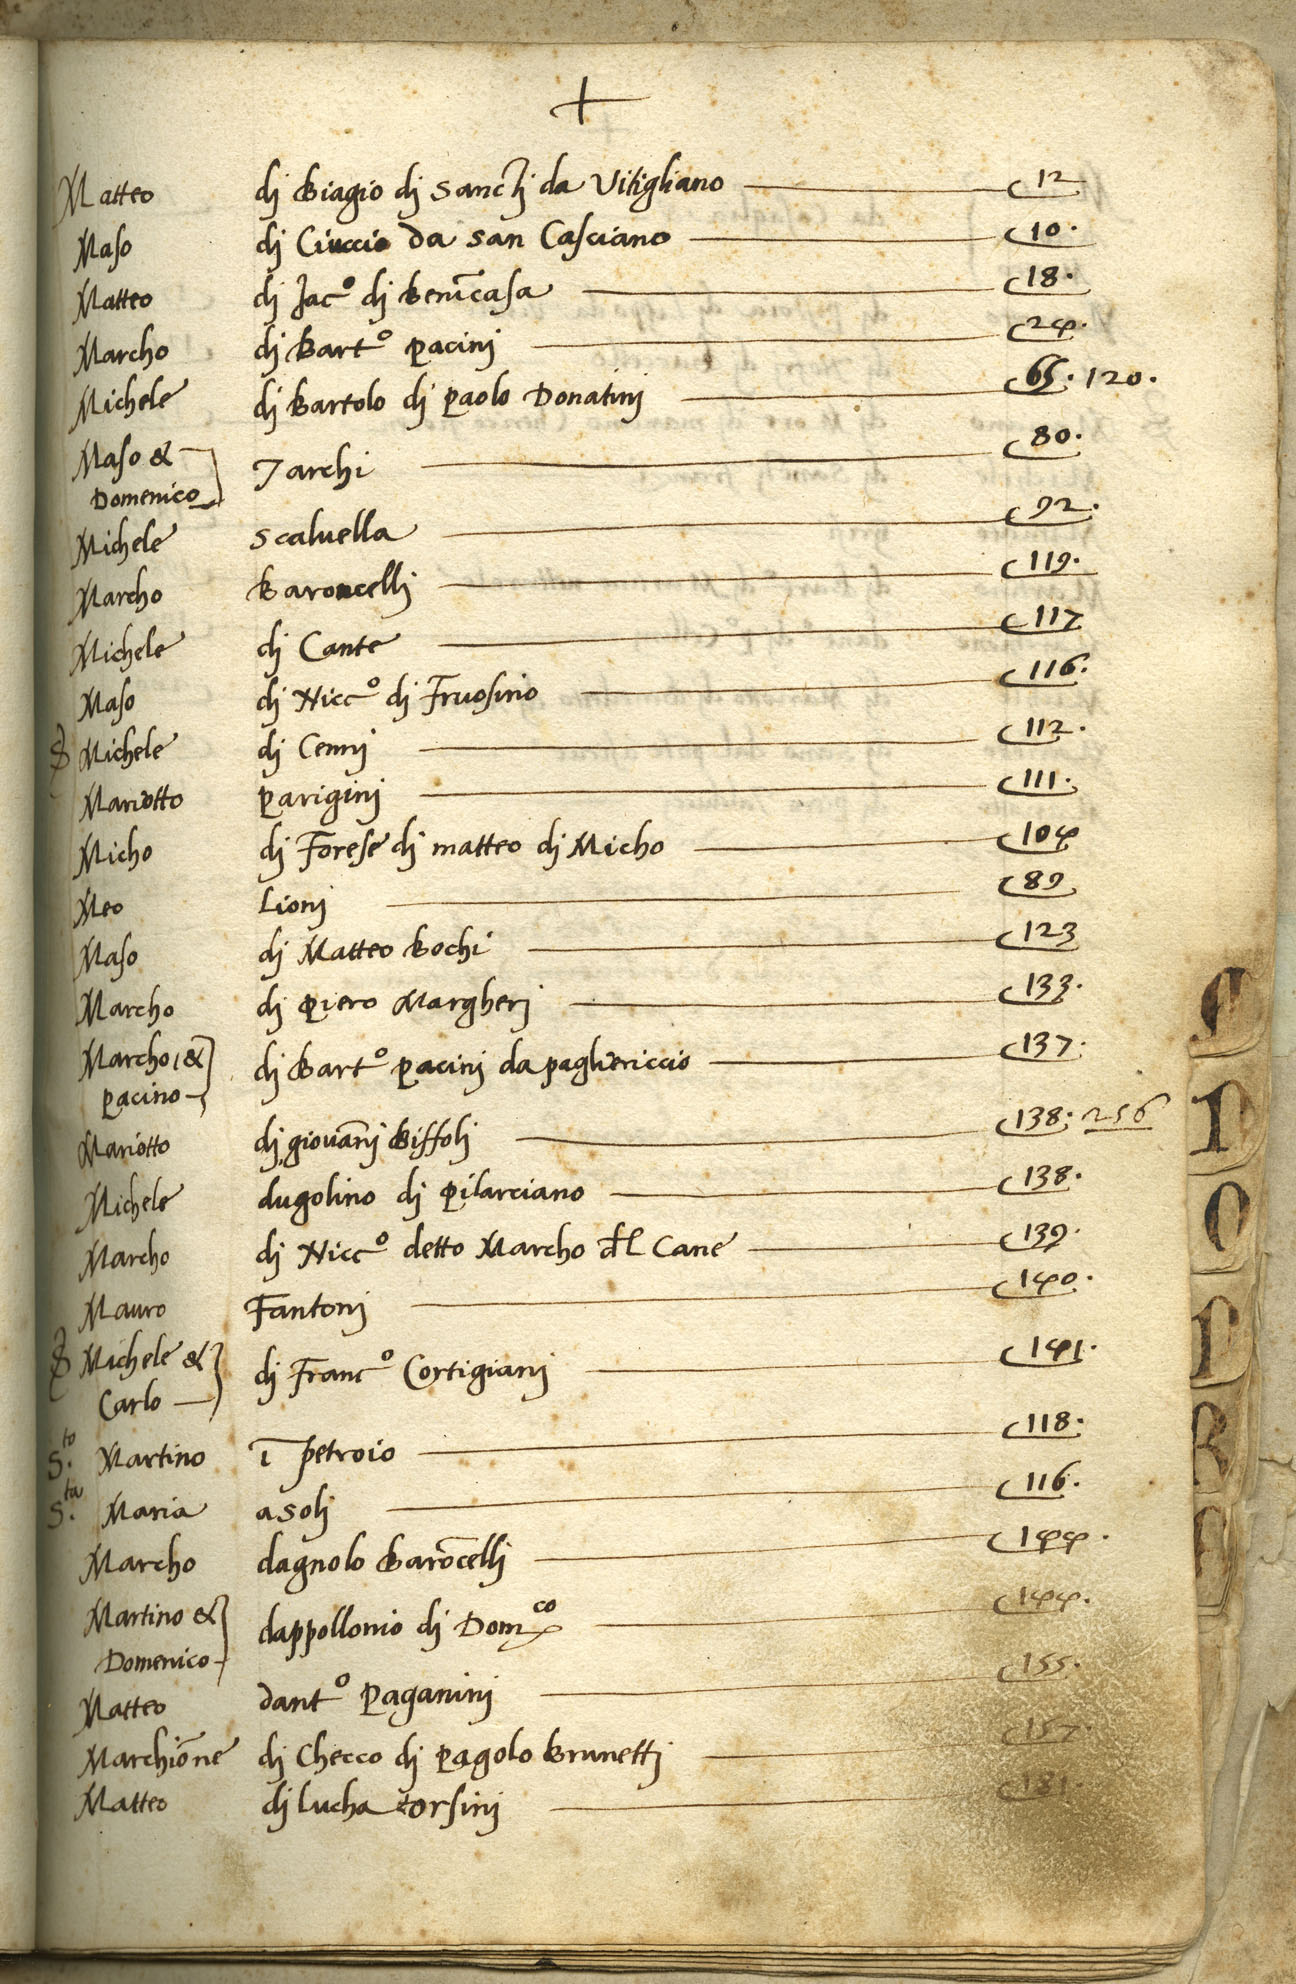 +
Matteo dj Biagio dj Sanctj da Vitigliano c 12
Maso dj Ciuccio da San Casciano c 10.
Matteo dj Jac.o dj Benīcasa c 18.
Marcho dj Bart.o pacinj c 24.
Michele dj Bartolo dj paolo Donatinj c 65. 120.
Maso & Domenico Tarchi c 80.
Michele Scaluella c 92.
Marcho Baroncellj c 119.
Michele dj Cante c 117
Maso dj Nicc.o dj Fruosino c 116.
Michele dj Cennj c 112.
Mariotto pariginj c 111.
Micho dj Forese dj matteo dj Micho c 104
Meo Lionj c 89
Maso dj Matteo Bochi c 123
Marcho dj piero Margherj c 133.
Marcho, & pacino dj Bart.o pacinj da pagliericcio c 137.
Mariotto dj giouānj Biffolj c 138. 256
Michele dugolino dj pilarciano c 138.
Marcho dj Nicc.o detto Marcho dl Cane c 139.
Mauro Fantonj c 140.
Michele & Carlo dj Franc.o Cortigianj c 141.
S.to Martino ī petroio c 118.
S.ta Maria a Solj c 116.
Marcho dagnolo Barōcellj c 144.
Martino & Domenico dappollonio dj Dom.co c 144.
Matteo dant.o paganinj c 155.
Marchiōne dj Checco dj pagolo Brunettj c 157.
Matteo dj Lucha torsinj c 181.
P
O
P
R